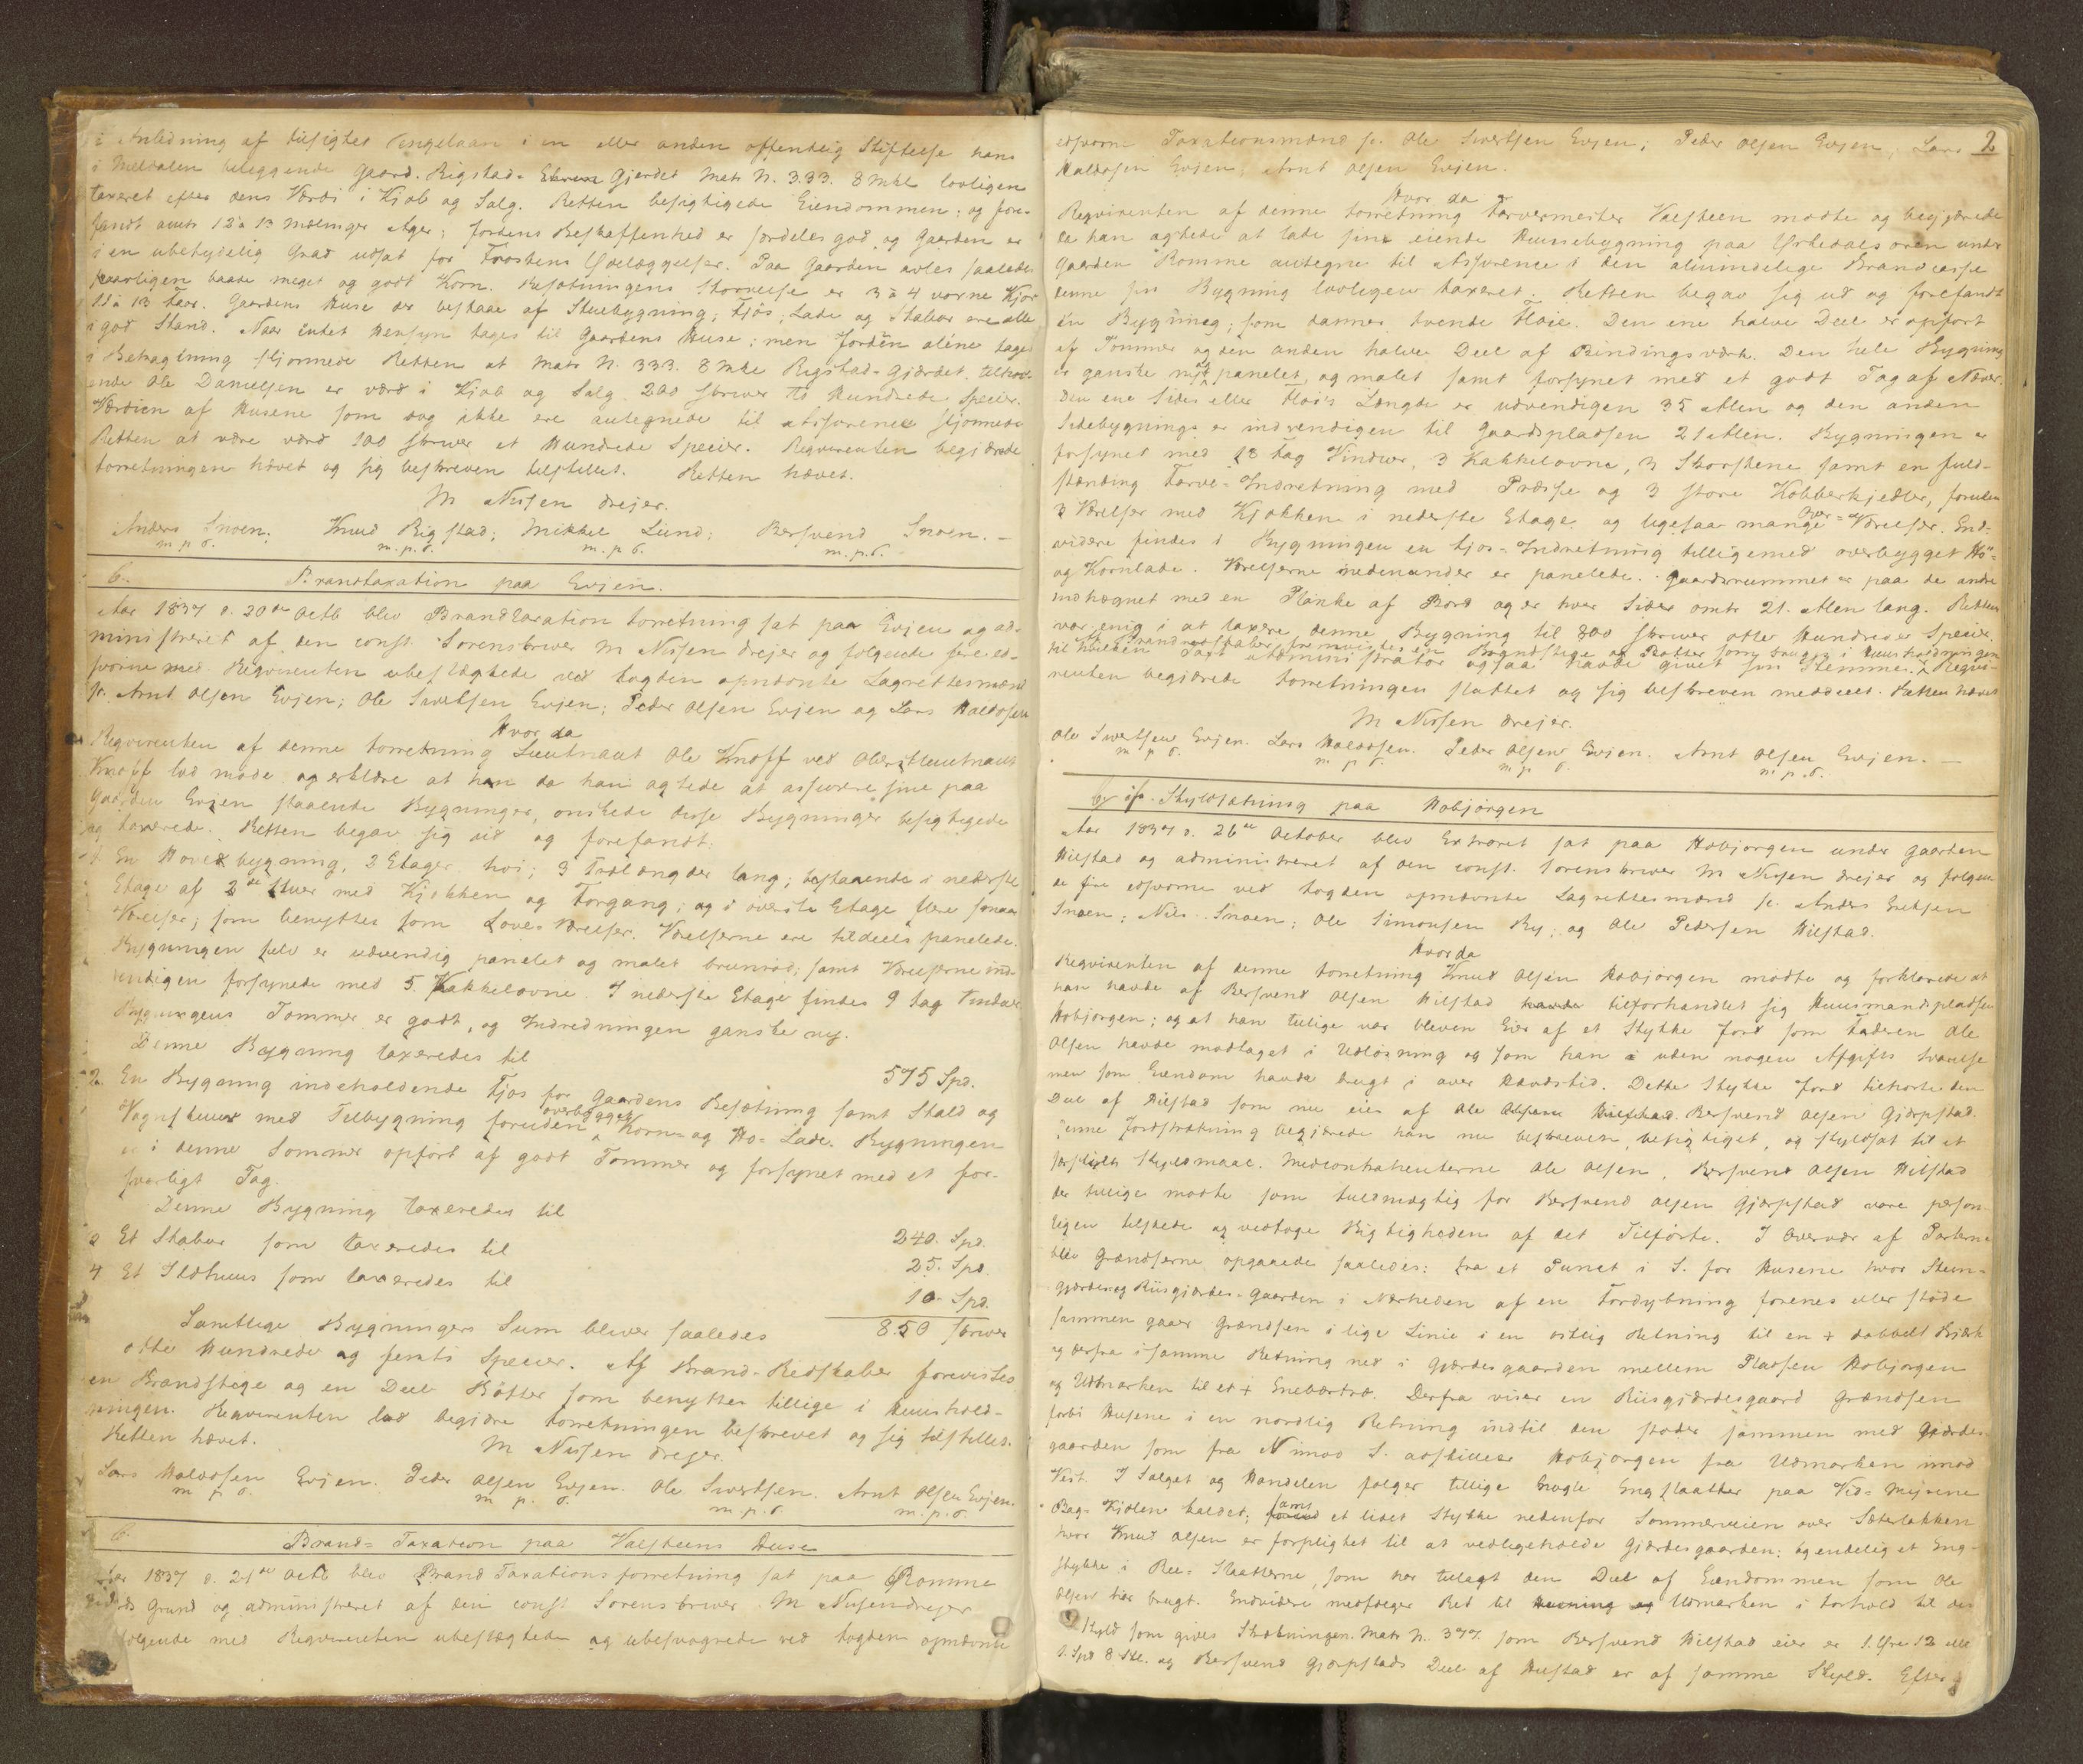 i Anledning af tilsigtet Pengelaan i en eller anden offentlig Stiftelse hans
i Meldalen beliggende Gaard. Rigstad- Gjerdet Matr N. 333. 8 Mkl lovligen
taxeret efter dens Værdi i Kjøb og Salg. Retten besigtigede Eiendommen; og fore-
fandt omtr 12 à 13 Mælinger Ager; Jordens Beskaffenhed er særdeles god, og Gaarden er
i en ubetydelig Grad udsat for Frostens Ødelæggelser. Paa Gaarden avles saaledes
aarligen baade meget og godt Korn. Besætningens Størrelse er 3 à 4 vorne Kjør
12 à 13 Faar. Gaardens Huse der bestaae af Stuebygning; Fjøs, Lade og Stabur ere alle
i god Stand. Naar intet Hensyn tages til Gaardens Huse; men Jorden alene tages
i Betragtning skjønnede Retten at Matr N. 333. 8 Mkl Rigstad-Gjærdet tilhør-
ende Ole Danielsen er værd i Kjøb og Salg 200 skriver To Hundrede Specier.
Værdien af Husene som dog ikke ere antegnede til Assurence skjønnede
Retten at være værd 100 skriver et Hundrede Specier. Reqvirenten begjærede
Forretningen hævet og sig beskreven tilstillet. Retten hævet.
M Nissen Drejer.
Anders Snoen. Knud Rigstad; Mikkel Lund; Bersvend Snoen. -
m p S. m.p.S. m.p S. m.p.S.
6. Brandtaxation paa Evjen.
Aar 1837 d. 20de Octb blev Brandtaxation Forretning sat paa Evjen og ad-
ministreret af den const. Sorenskriver M Nissen Drejer og følgende fire ed-
svorne med Reqvirenten ubeslægtede ved Fogden opnævnte Lagrettesmænd
s. Arnt Olsen Evjen; Ole Sivertsen Evjen; Peder Olsen Evjen og Lars Haldosen
Hvor da
Reqvirenten af denne Forretning Lieutnant Ole Knoff ved Oberstlieutnant
Knoff lod møde og erklære at han da han agtede at assurere sine paa
Gaarden Evjen staaende Bygninger, ønskede disse Bygninger besigtigede
og taxerede. Retten begav sig ud og forefandt:
1. En Hovedbygning, 2 Etager høi; 3 Trælængder lang; bestaaende i nederste
Etage af 2de Stuer med Kjøkken og Forgang; og i øverste Etage flere smaa
Værelser; som benyttes som Sove-Værelser. Værelserne ere tildeels panelede.
Bygningen selv er udvendig panelet og malet brunrød; samt Værelserne ind-
vendigen forsynede med 5 Kakkelovne. I nederste Etage findes 9 Fag Vinduer
Bygningens Tømmer er godt, og Indredningen ganske ny.
Denne Bygning taxeredes til 575 Spd.
2. En Bygning indeholdende Fjøs for Gaardens Besætning samt Stald og
Vognskuur med Tilbygning foruden overbygget Korn- og Hø-Lade. Bygningen
er i denne Sommer opført af godt Tømmer og forsynet med et for-
svarligt Tag.
Denne Bygning taxeredes til 240. Spd.
3 Et Stabur som taxeredes til 25. Spd
4 Et Ildhuus som taxeredes til 10. Spd.
Samtlige Bygningers Sum bliver saaledes 850 skriver
otte Hundrede og femti Specier. Af Brand-Redskaber forevistes
en Brandstige og en Deel Bøtter som benyttes tillige i Huushold-
ningen. Reqvirenten lod begjære Forretningen beskrevet og sig tilstillet.
Retten hævet. M Nissen Drejer.
Lars Haldosen Evjen. Peder Olsen Evjen. Ole Sivertsen. Arnt Olsen Evjen.
m p S. m p. S. m.p.S. m.p.S.
6. Brand-Taxation paa Valsteens Huse
Aar 1837 d. 21de Octb blev Brand Taxationsforretning sat paa Romme
Grund og administreret af den const Sorenskriver M Nissendrejer
følgende med Reqvirenten ubeslægtede og ubesvogrede ved Fogden opnævnte
2
edsvorne Taxationsmænd s. Ole Sivertsen Evjen; Peder Olsen Evjen, Lars
Haldosen Evjen; Arnt Olsen Evjen.
Hvor da
Reqvirenten af denne Forretning Farvermester Valsteen mødte og begjærede
da han agtede at lade sine eiende Huusebygning paa Ørkedalsøren under
Gaarden Romme antegne til Assurence i den almindelige Brandcasse
denne sin Bygning lovligen taxeret. Retten begav sig ud og forefandt
en Bygning; som danner tvende Fløie. Den ene halve Deel er opført
af Tømmer og den anden halve Deel af Bindingsværk. Den hele Bygning
er ganske nyt panelet, og malet samt forsynet med et godt Tag af Næver.
Den ene Sides eller Fløi's Længde er udvendigen 35 Alen og den anden
Sidebygnings er indvendigen til Gaardspladsen 21 Alen. Bygningen er
forsynet med 18 Fag Vinduer, 3 Kakkelovne, 3 Skorstene, samt en fuld-
stænding Farve-Indretning med Presse og 3 store Kobberkjedler, foruden
3 Værelser med Kjøkken i nederste Etage og ligesaa mange Over-Værelser. End-
videre findes i Bygningen en Fjøs-Indretning tilligemed overbygget Hø-
og Kornlade. Værelserne nedenunder er panelede. Gaardsrummet er paa de andre
indhegnet med en Planke af Bord og er hver Sider omtr 21. Alen lang. Retten
var enig i at taxere denne Bygning til 800 skriver otte Hundreder Specier.
Af Brandredskaber fremvistes en Brandstige og Bøtter som bruges i Huusholdningen
til hvilken Taxt Administrator ogsaa havde givet sin Stemme. Reqvi-
renten begjærede Forretningen sluttet og sig beskreven meddeelt. Retten hævet
M Nissen Drejer.
Ole Sivertsen Evjen. Lars Haldosen. Peder Olsen Evjen. Arnt Olsen Evjen. —
m p S. m p S. m p S. m p.S.
Skyldsætning paa Hobjørgen
Aar 1837 d. 26de October blev Extraret sat paa Hobjørgen under Gaarden
Hilstad og administreret af den const. Sorenskriver M Nissen Drejer og følgen-
de fire edsvorne ved Fogden opnævnte Lagrettesmænd s. Anders Eriksen
Snoen; Nils Snoen; Ole Simonsen By; og Ole Pedersen Hilstad.
Hvorda
Reqvirenten af denne Forretning Knud Olsen Hobjørgen mødte og forklarede at
han havde af Bersvend Olsen Hilstad havde tilforhandlet sig Huusmandspladsen
Hobjørgen; og at han tillige var bleven Eier af et Stykke Jord som Faderen Ole
Olsen havde modtaget i Udløsning og som han i uden nogen Afgifts Svarelse
men som Eiendom havde brugt i over Hævdstid. Dette Stykke Jord tilhørte den
Deel af Hilstad som nu eies af Ole Olsen Hilstad. Bersvend Olsen Gjærpstad.
Denne Jordstrækning begjærede han nu beskreven, besigtiget, og skyldsat til et
særskilt Skyldmaal. Medcontrahenterne Ole Olsen, Bersvend Olsen Hilstad
der tillige mødte som Fuldmægtig for Bersvend Olsen Gjærpstad vare person-
ligen tilstede og vedtoge Rigtigheden af det Tilførte. I Overvær af Parterne
blev Grændserne opgaaede saaledes: fra et Punct i S. for Husene hvor Steen-
gjærdes og Riisgjærdes-Gaarden i Nærheden af en Fordybning forenes eller støde
sammen gaaer Grændsen i lige Linie i en østlig Retning til en + dobbelt Birk
og derfra i samme Retning ned i Gjærdesgaarden mellem Pladsen Hobjørgen
og Udmarken til et + Enebærtræ. Derfra viser en Riisgjærdesgaard Grændsen
forbi Husene i en nordlig Retning indtil den støder sammen med Gjærdes-
gaarden som fra N imod S. adskiller Hobjørgen fra Udmarken imod
Vest. I Salget og Handelen følger tillige nogle Engslaatter paa Vids Myrene
Bag-Kjølen kaldet; samt et lidet Stykke nedenfor Sommerveien over Sæterløkken
hvor Knud Olsen er forpligtet til at vedligeholde Gjærdesgaarden; og endelig et Eng-
stykke i Ree-Slaatterne, som har tillagt den Deel af Eiendommen som Ole
Olsen har brugt. Endvidere medfølger Ret til Havning og Udmarken i Forhold til den
Skyld som gives Strækningen. Matr N. 377. som Bersvend Hilstad eier er 1. Øre 12 eller
1. Spd 8 Skl. og Bersvend Gjærpstads Deel af Hilstad er af samme Skyld. Efter